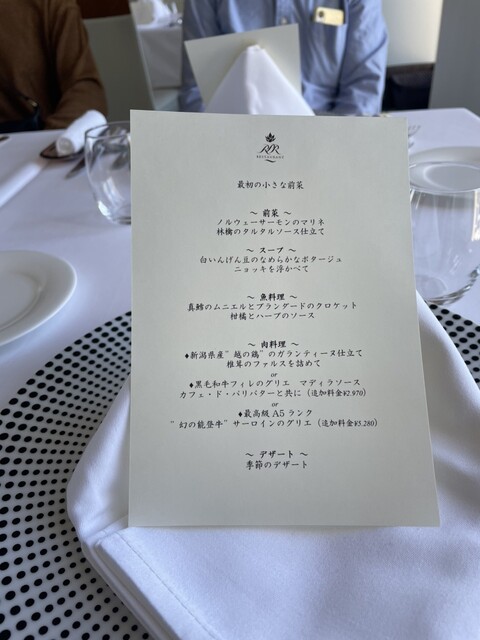 RESTAURANT
最初の小さな前菜
～ 前菜 ～
ノルウェーサーモンのマリネ
林檎のタルタルソース仕立て
～ スープ ～
白いんげん豆のなめらかなポタージュ
ニョッキを浮かべて
～ 魚料理 ～
真鱈のムニエルとブランダードのクロケット
柑橘とハーブのソース
～ 肉料理 ～
♦新潟県産”越の鶏”のガランティーヌ仕立て
椎茸のファルスを詰めて
or
♦黒毛和牛フィレのグリエ　マディラソース
カフェ・ド・パリバターと共に（追加料金¥2,970）
or
♦最高級 A5 ランク
”幻の能登牛”サーロインのグリエ（追加料金¥5,280）
～ デザート ～
季節のデザート